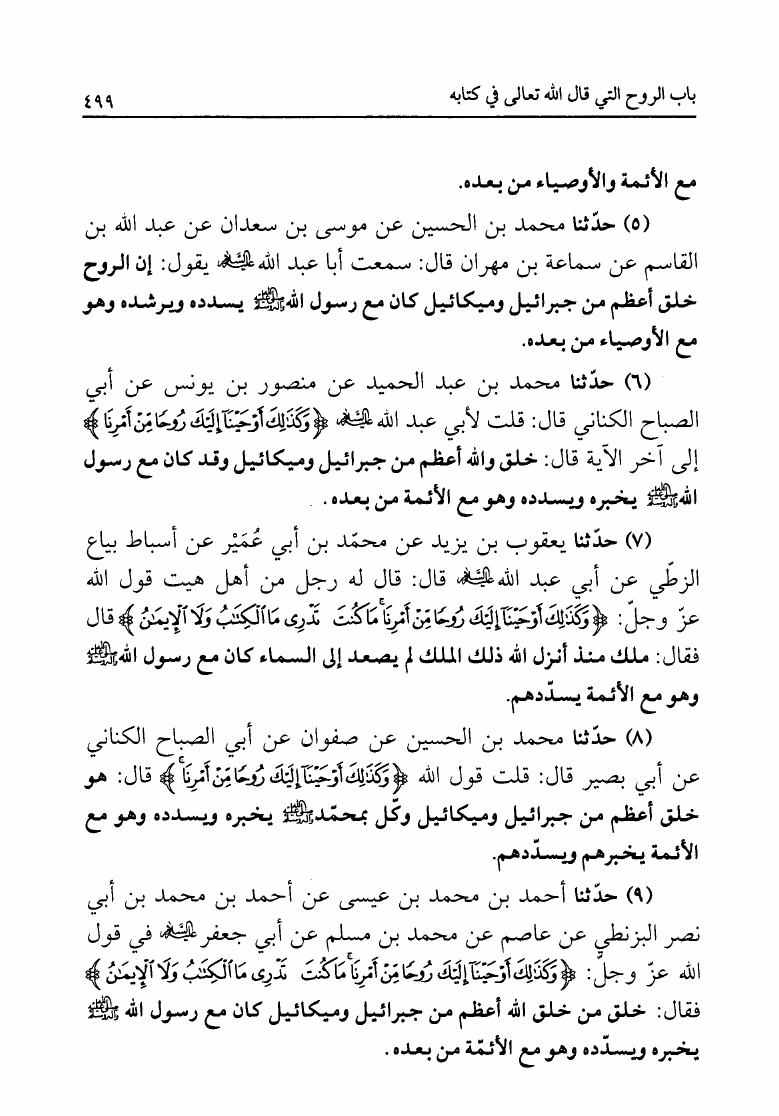 باب الروح التي قال الله تعالى في كتابه ٤٩٩
مع الأئمة والأوصياء من بعده.
(٥) حدّثنا محمد بن الحسين عن موسى بن سعدان عن عبد الله بن
القاسم عن سماعة بن مهران قال: سمعت أبا عبد الله عليه السلام يقول: إن الروح
خلق أعظم من جبرائيل وميكائيل كان مع رسول الله صلى الله عليه وآله يسدده ويرشده وهو
مع الأوصياء من بعده.
(٦) حدّثنا محمد بن عبد الحميد عن منصور بن يونس عن أبي
الصباح الكناني قال: قلت لأبي عبد الله عليه السلام ﴿وَكَذَٰلِكَ أَوْحَيْنَآ إِلَيْكَ رُوحًا مِّنْ أَمْرِنَا﴾
إلى آخر الآية قال: خلق والله أعظم من جبرائيل وميكائيل وقد كان مع رسول
الله صلى الله عليه وآله يخبره ويسدده وهو مع الأئمة من بعده.
(٧) حدّثنا يعقوب بن يزيد عن محمّد بن أبي عُمَيْر عن أسباط بياع
الزطّي عن أبي عبد الله عليه السلام قال: قال له رجل من أهل هيت قول الله
عزّ وجلّ: ﴿وَكَذَٰلِكَ أَوْحَيْنَآ إِلَيْكَ رُوحًا مِّنْ أَمْرِنَا ۚ مَا كُنتَ تَدْرِى مَا ٱلْكِتَٰبُ وَلَا ٱلْإِيمَٰنُ﴾ قال
فقال: ملك منذ أنزل الله ذلك الملك لم يصعد إلى السماء كان مع رسول الله صلى الله عليه وآله
وهو مع الأئمة يسدّدهم.
(٨) حدّثنا محمد بن الحسين عن صفوان عن أبي الصباح الكناني
عن أبي بصير قال: قلت قول الله ﴿وَكَذَٰلِكَ أَوْحَيْنَآ إِلَيْكَ رُوحًا مِّنْ أَمْرِنَا ۚ﴾ قال: هو
خلق أعظم من جبرائيل وميكائيل وكّل بمحمّد صلى الله عليه وآله يخبره ويسدده وهو مع
الأئمة يخبرهم ويسدّدهم.
(٩) حدّثنا أحمد بن محمد بن عيسى عن أحمد بن محمد بن أبي
نصر البزنطي عن عاصم عن محمد بن مسلم عن أبي جعفر عليه السلام في قول
الله عزّ وجلّ: ﴿وَكَذَٰلِكَ أَوْحَيْنَآ إِلَيْكَ رُوحًا مِّنْ أَمْرِنَا ۚ مَا كُنتَ تَدْرِى مَا ٱلْكِتَٰبُ وَلَا ٱلْإِيمَٰنُ﴾
فقال: خلق من خلق الله أعظم من جبرائيل وميكائيل كان مع رسول الله صلى الله عليه وآله
يخبره ويسدّده وهو مع الأئمّة من بعده.